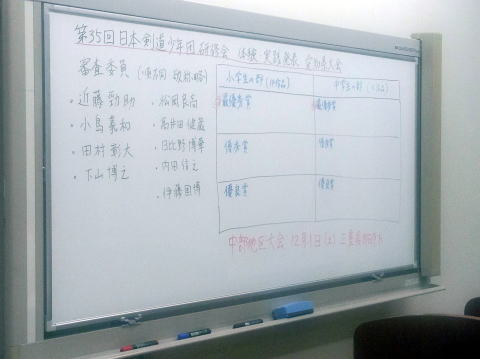 第35回日本剣道少年団研修会 体験・実践発表 愛知県大会
審査委員 (順不同 敬称略)
・近藤勁助
・小島義和
・田村彰大
・下山博之
・松風良高
・高井田健蔵
・日比野博華
・内田信之
・伊藤国博
小学生の部
中学生の部
最優秀賞
最優秀賞
優秀賞
優秀賞
優良賞
優良賞
中部地区大会 12月1日(土) 三重県四日市市